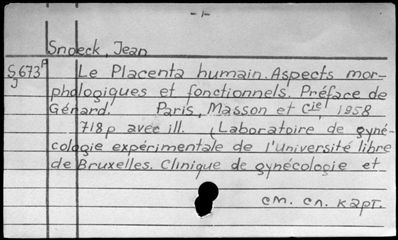 - 1 -
Snoeck, Jean
S673ᴾ Le Placenta humain. Aspects mor-
J phologiques et fonctionnels. Préface de
Gérard. Paris, Masson et Cie, 1958
718p avec ill. (Laboratoire de gyné-
cologie expérimentale de l'Université libre
de Bruxelles. Clinique de gynécologie et
см. сл. карт.